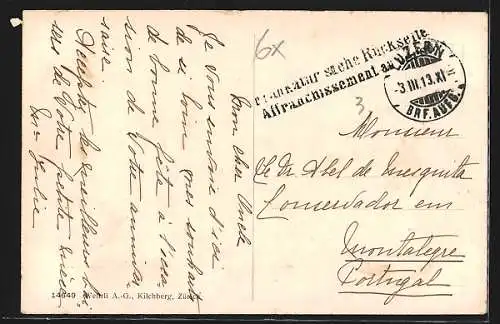 Mon cher Oncle
Je vous envoie d'ici
de si loin mes souhaits
de bonne fête à l'occa
sion de Votre anniver
saire.
Acceptez les meilleurs bai
sers de Votre petite nièce
6x
Frankatur siehe Rückseite
Affranchissement au
LUZERN
-3.III.13.XI-
BRF.AUFG.
3
Monsieur
Le Dr. Abel de Mesquita
Conservador em
Montalegre
Portugal
14649 Wehrli A.-G., Kilchberg, Zürich